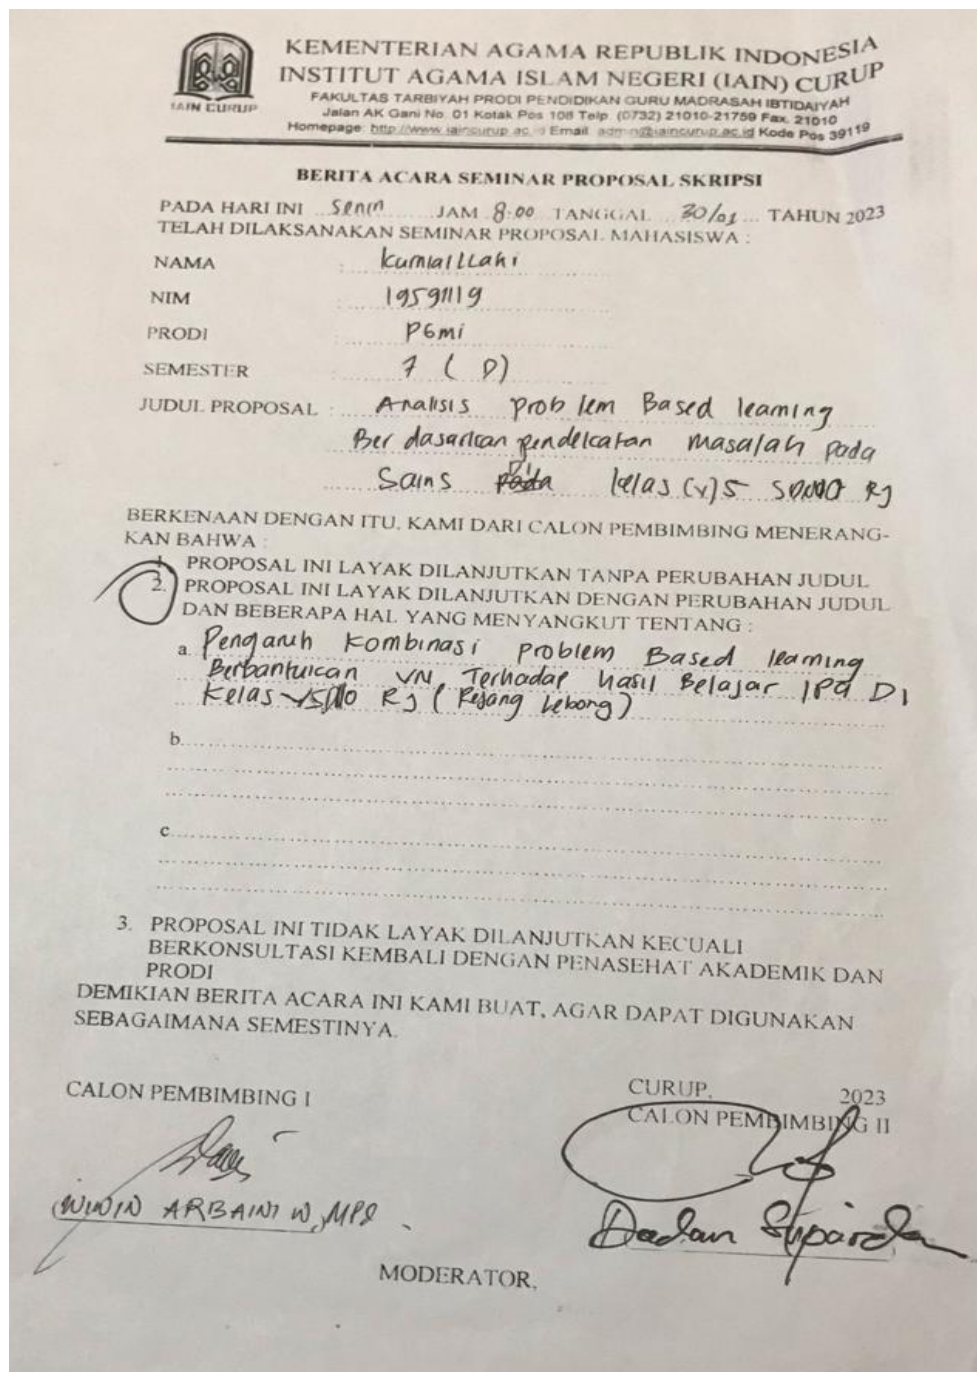 KEMENTERIAN AGAMA REPUBLIK INDONESIA
INSTITUT AGAMA ISLAM NEGERI (IAIN) CURUP
FAKULTAS TARBIYAH PRODI PENDIDIKAN GURU MADRASAH IBTIDAIYAH
Jalan AK Gani No. 01 Kotak Pos 108 Telp. (0732) 21010-21759 Fax. 21010
Homepage: http://www.iaincurup.ac.id Email: admin@iaincurup.ac.id Kode Pos 39119
IAIN CURUP
BERITA ACARA SEMINAR PROPOSAL SKRIPSI
PADA HARI INI Senin JAM 8:00 TANGGAL 30/01 TAHUN 2023
TELAH DILAKSANAKAN SEMINAR PROPOSAL MAHASISWA :
NAMA : kurniaIllahi
NIM : 19591119
PRODI : PGmi
SEMESTER : 7 ( D)
JUDUL PROPOSAL : Analisis problem Based learning
Berdasarkan pendekatan masalah pada
Sains Di kelas (v) 5 RJ
BERKENAAN DENGAN ITU, KAMI DARI CALON PEMBIMBING MENERANG-
KAN BAHWA :
1. PROPOSAL INI LAYAK DILANJUTKAN TANPA PERUBAHAN JUDUL
2. PROPOSAL INI LAYAK DILANJUTKAN DENGAN PERUBAHAN JUDUL
DAN BEBERAPA HAL YANG MENYANGKUT TENTANG :
a. Pengaruh Kombinasi problem Based learning
Berbantuican VN Terhadap hasil Belajar IPA DI
Kelas RJ ( Rejang Lebong )
b.
c.
3. PROPOSAL INI TIDAK LAYAK DILANJUTKAN KECUALI
BERKONSULTASI KEMBALI DENGAN PENASEHAT AKADEMIK DAN
PRODI
DEMIKIAN BERITA ACARA INI KAMI BUAT, AGAR DAPAT DIGUNAKAN
SEBAGAIMANA SEMESTINYA.
CURUP, 2023
CALON PEMBIMBING I CALON PEMBIMBING II
WIWIN ARBAINI W, MPd Dadan Suparda
MODERATOR,